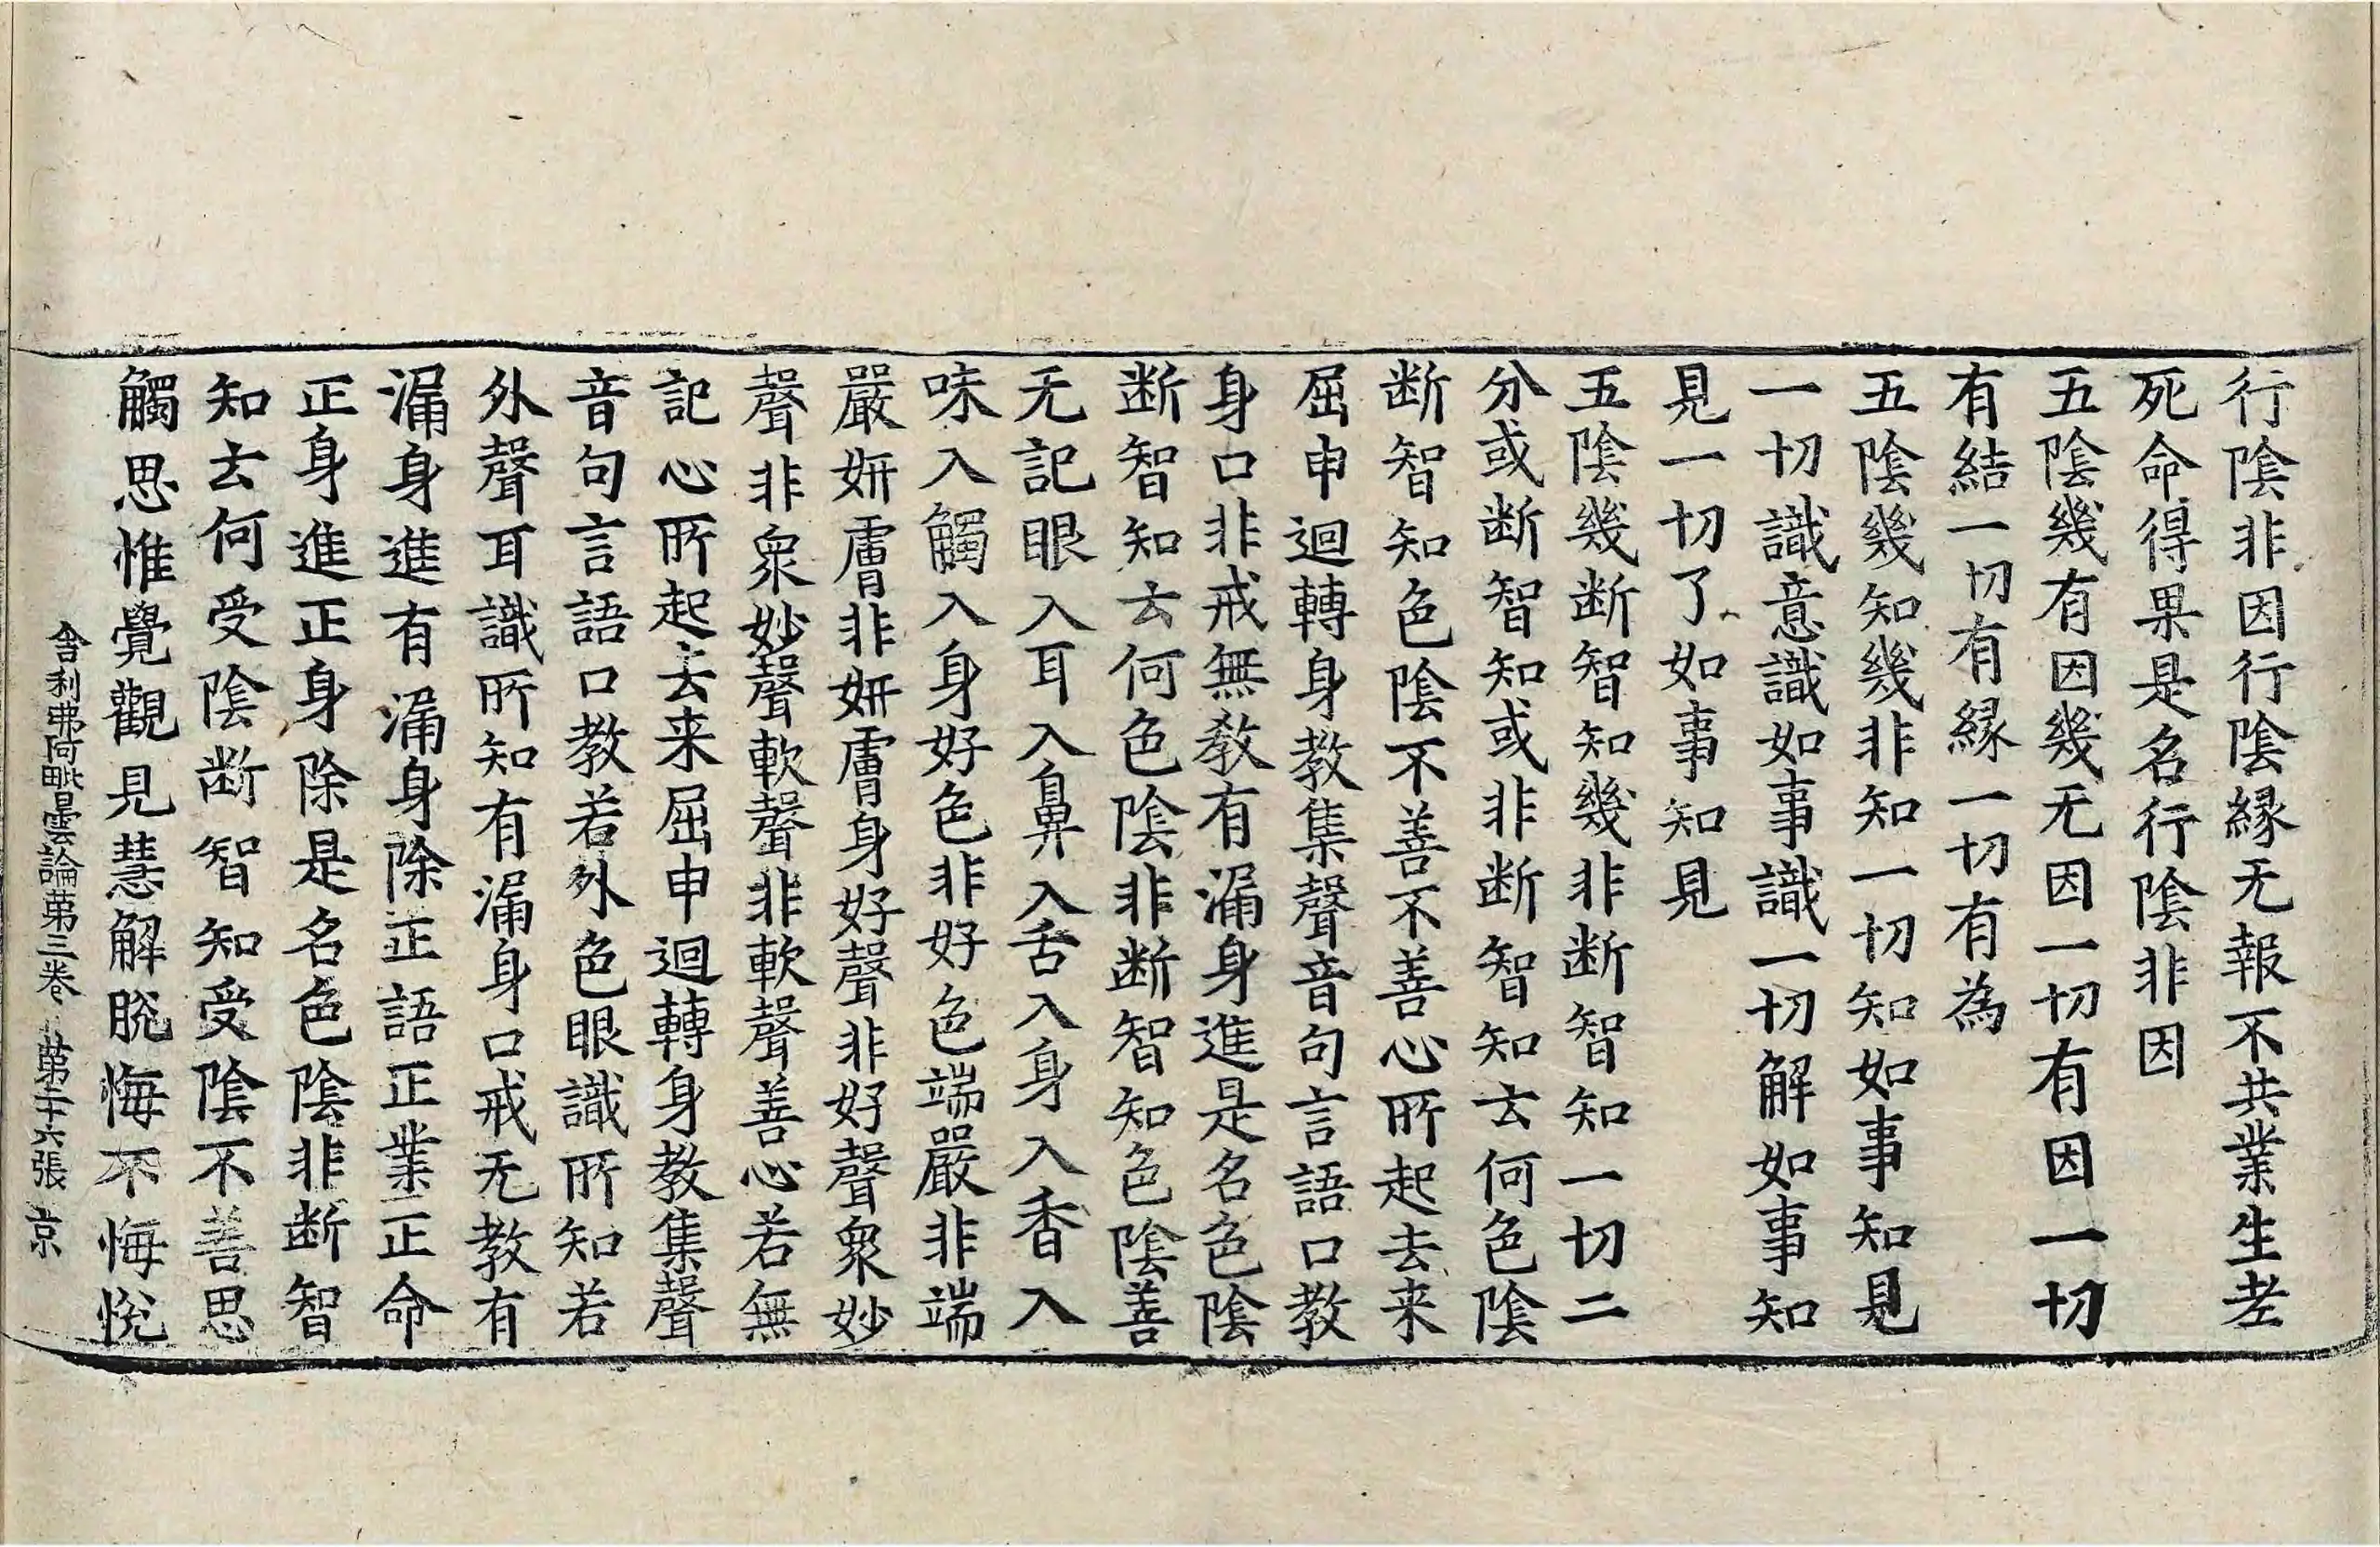 行陰非因行陰縁无報不共業生老
死命得果是名行陰非因
五陰幾有因幾无因一切有因一切
有結一切有縁一切有為
五陰幾知幾非知一切知如事知見
一切識意識如事識一切解如事知
見一切了如事知見
五陰幾断智知幾非断智知一切二
分或断智知或非断智知去何色陰
断智知色陰不善不善心所起去来
屈申迴轉身教集聲音句言語口教
身口非戒無教有漏身進是名色陰
断智知去何色陰非断智知色陰善
无記眼入耳入鼻入舌入身入香入
味入觸入身好色非好色端嚴非端
嚴妍膚非妍膚身好聲非好聲衆妙
聲非衆妙聲軟聲非軟聲善心若無
記心所起去来屈申迴轉身教集聲
音句言語口教若外色眼識所知若
外聲耳識所知有漏身口戒无教有
漏身進有漏身除正語正業正命
正身進正身除是名色陰非断智
知去何受陰断智知受陰不善思
觸思惟覺觀見慧解脫悔不悔悅
舎利弗阿毗曇論第三卷 第二十六張 京